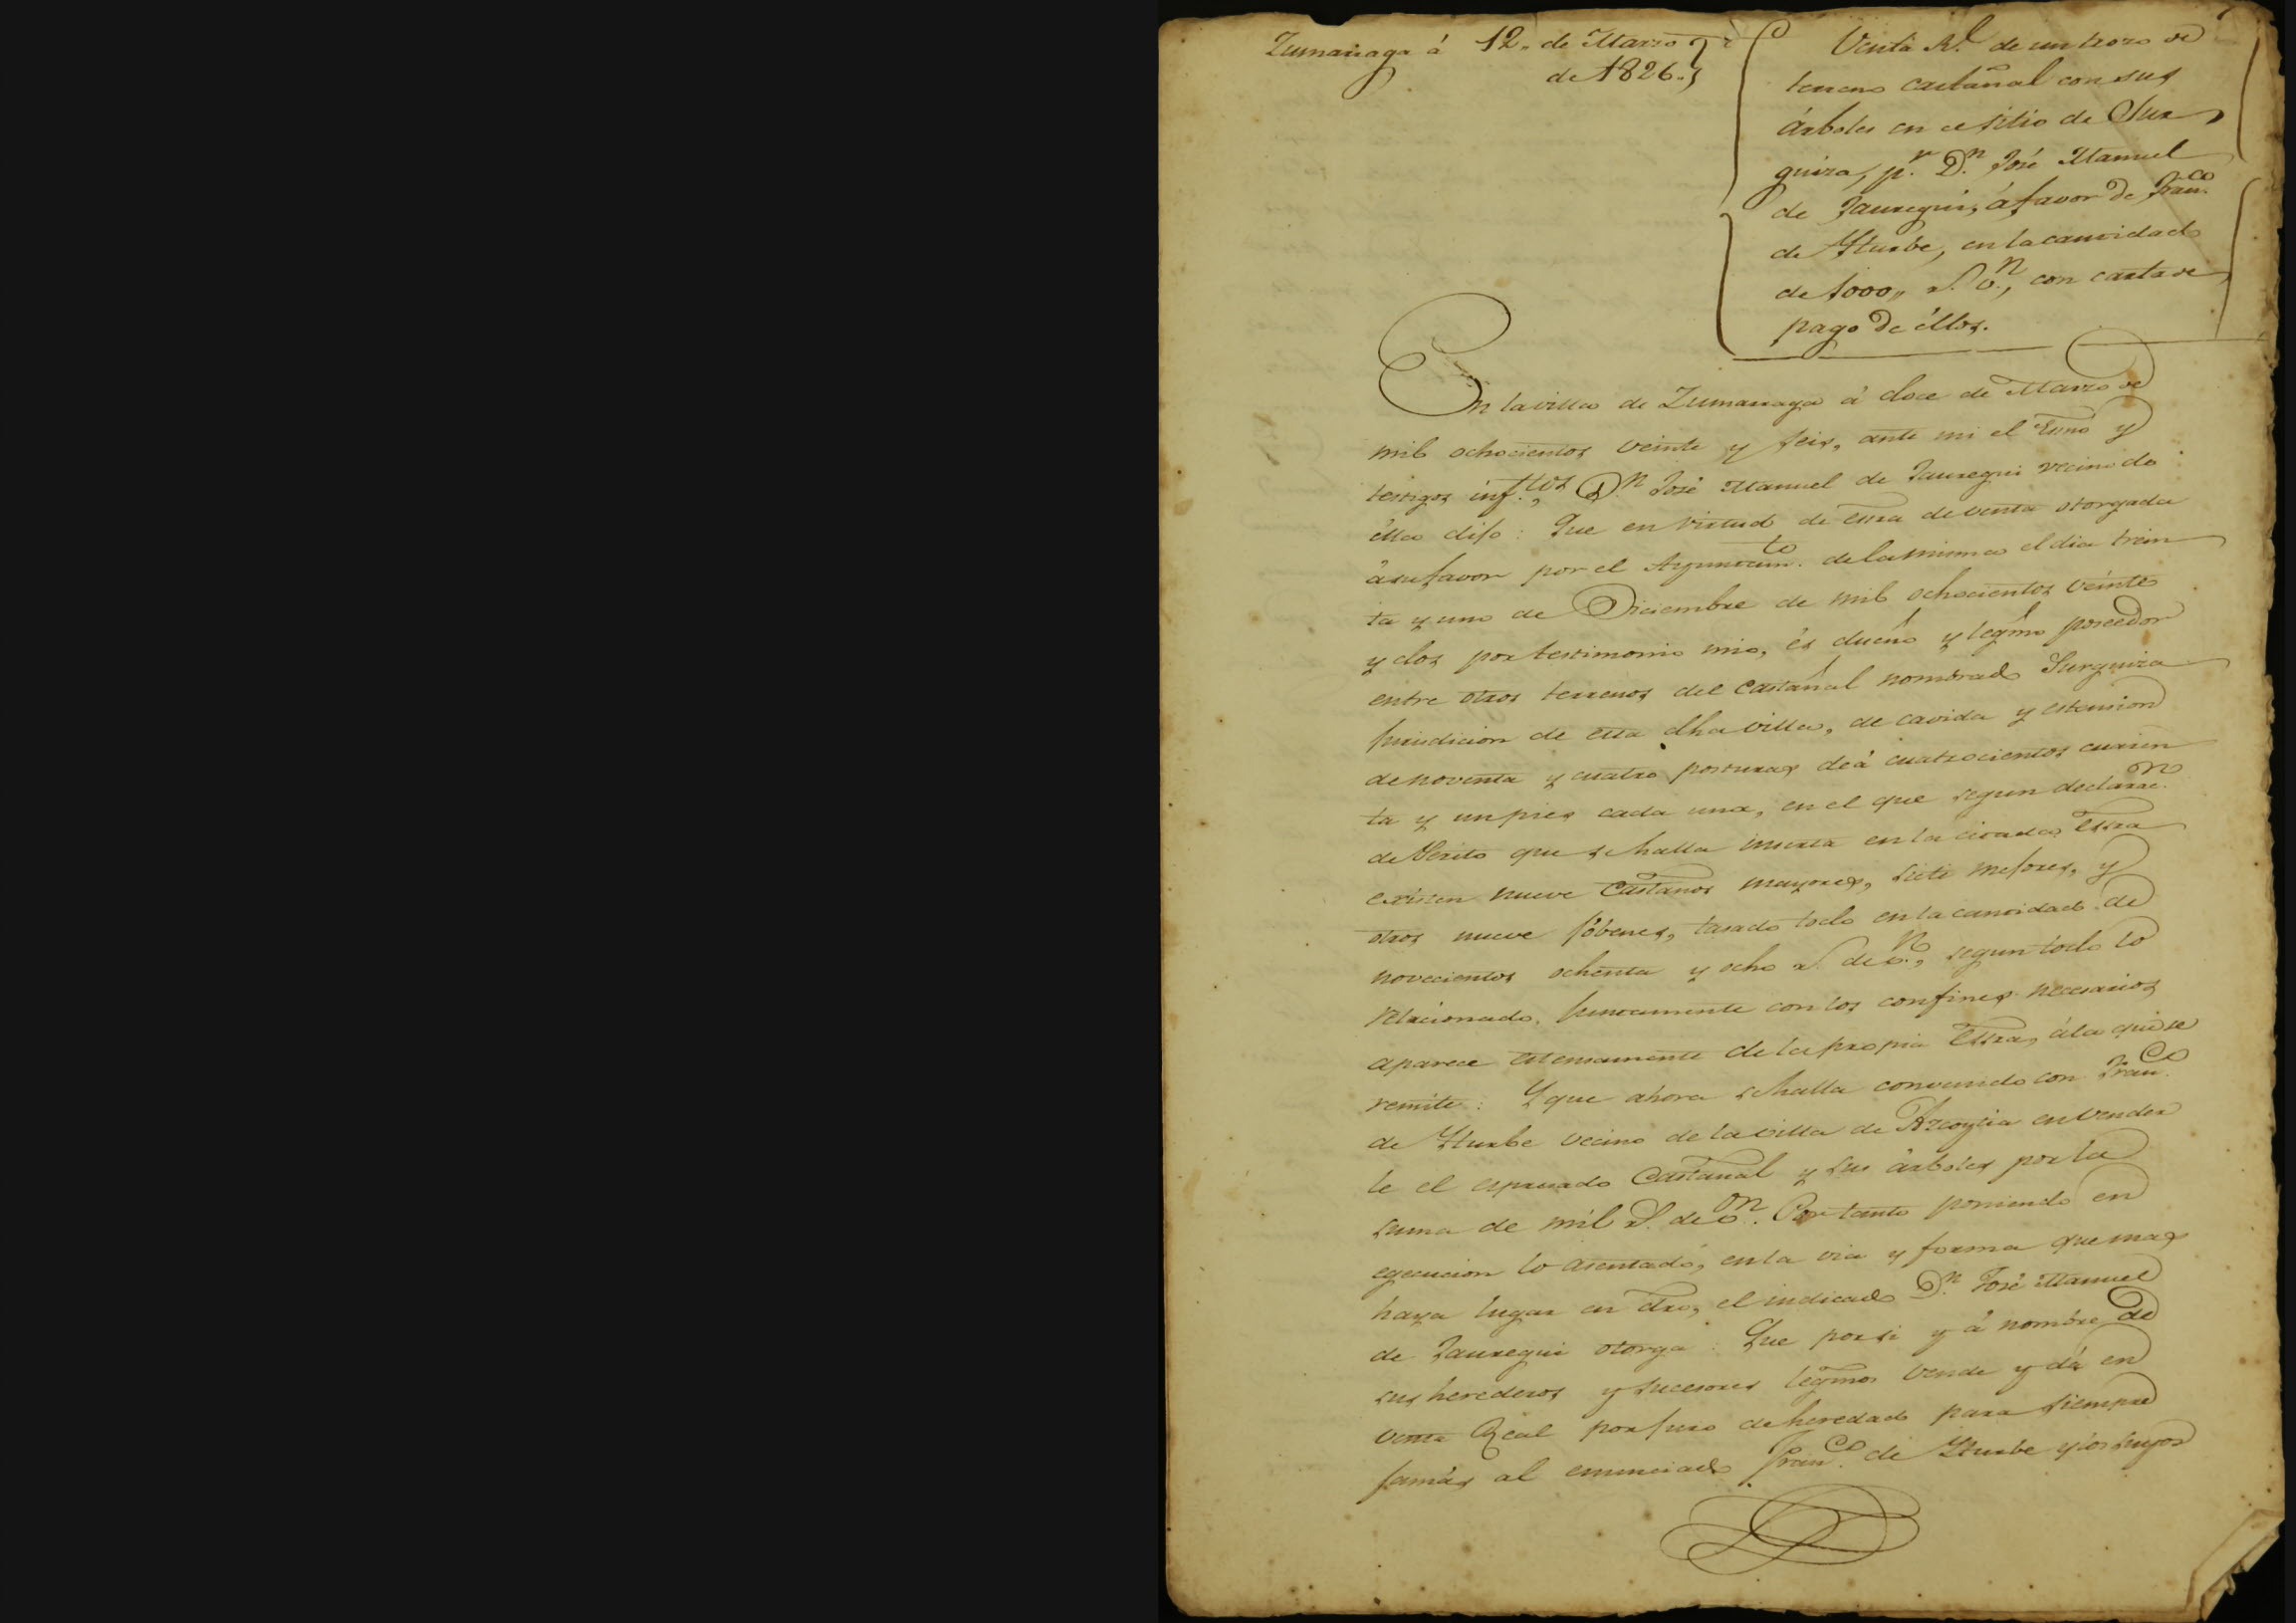 Zumarraga á 12. de Marzo
de 1826.
Venta Rl. de un trozo de
terreno castañal con sus
árboles en el sitio de Sur
guiza, pr. Dn. José Manuel
de Jauregui, á favor de Franco.
de Yturbe, en la cantidad
de 1000,, rs. vn., con carta de
pago de éllos.
En la villa de Zumarraga á doce de Marzo de
mil ochocientos veinte y seis, ante mi el Esno y
testigos inf.ttos, Dn. José Manuel de Jauregui vecino de
élla dijo: Que en virtud de essra de venta otorgada
á su favor por el Ayuntamto. de la misma el dia trein
ta y uno de Diciembre de mil ochocientos veinte
y dos por testimonio mio, és dueño y legmo poseedor
entre otros terrenos del Castañal nombrado Surguiza
jurisdicion de esta dha villa, de cavida y estension
de noventa y cuatro posturas de á cuatrocientos cuaren
ta y un pies cada una, en el que segun declaracn.
de Perito que se halla inserta en la citada Essra
existen nueve Castaños mayores, siete mejores, y
otros nueve jóbenes, tasado todo en la cantidad de
novecientos ochenta y ocho rs. de vn., segun todo lo
relacionado, juntamente con los confines necesarios
aparece estensamente de la propia Essra, á la que se
remite: Y que ahora se halla convenido con Franco.
de Yturbe vecino de la villa de Azcoytia en vender
le el espresado Castañal y sus árboles por la
suma de mil rs. de von. Por tanto poniendo en
egecucion lo asentado, en la via y forma que mas
haya lugar en dro, el indicado Dn. José Manuel
de Jauregui otorga: Que por si y á nombre de
sus herederos y sucesores legmos vende y dá en
venta Real por juro de heredad para siempre
jamás al enunciado Franco. de Yturbe y los suyos